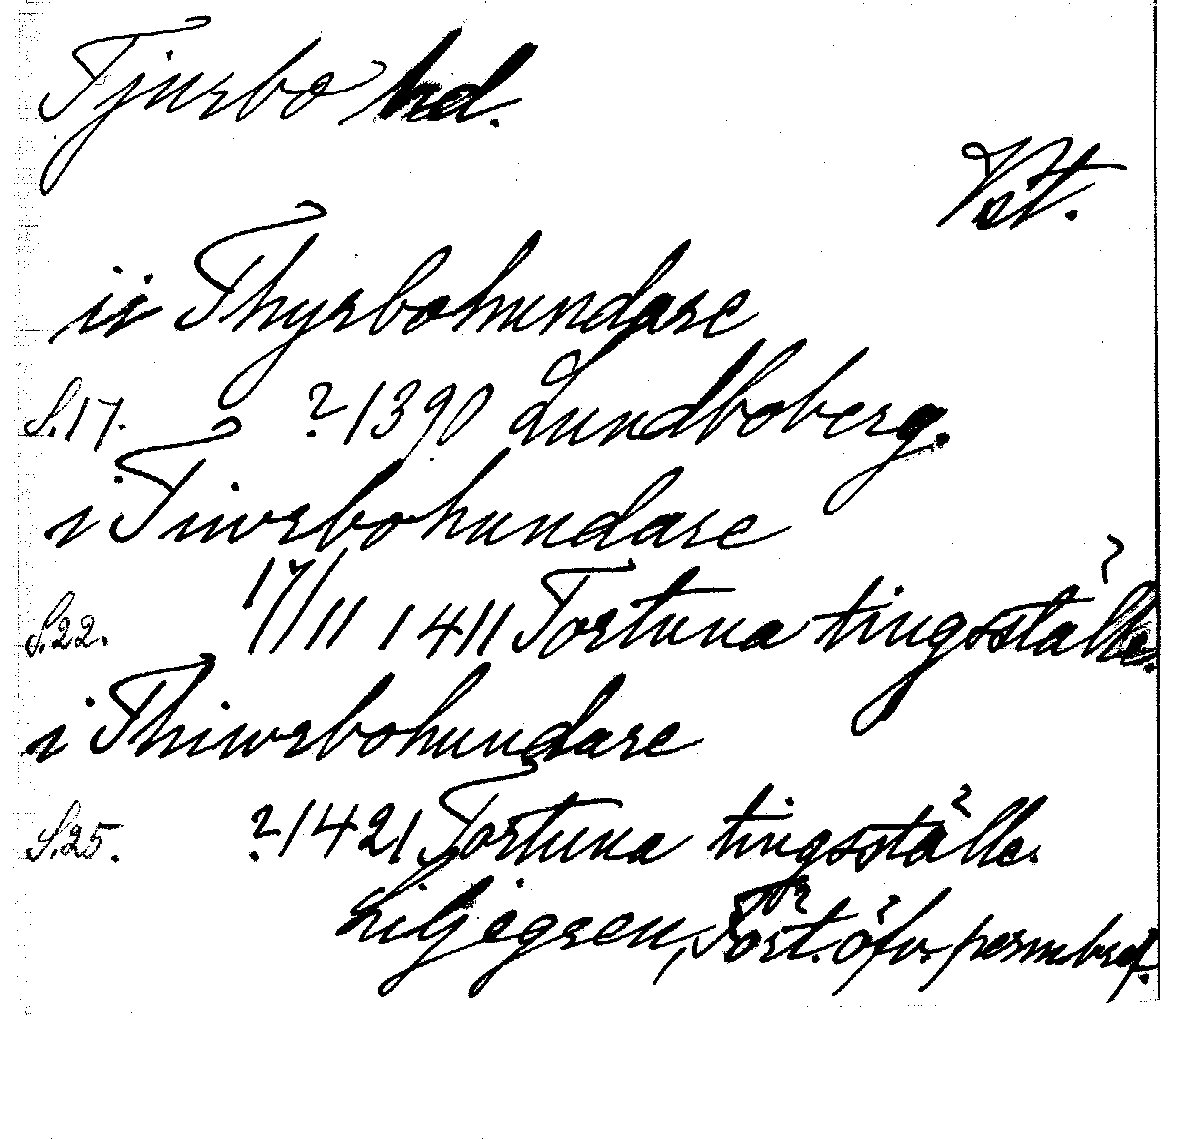 Tjurbo hd.
Vst.
ii Thyrbohundare
S. 17. ? 1390 Lundboberg.
i Tiwrbohundare
S. 22. 17/11 1411 Tortuna tingsställe.
i Thiwrbohundare
S. 25. ? 1421 Tortuna tingsställe.
Liljegren, Fört. öfv. permbref.